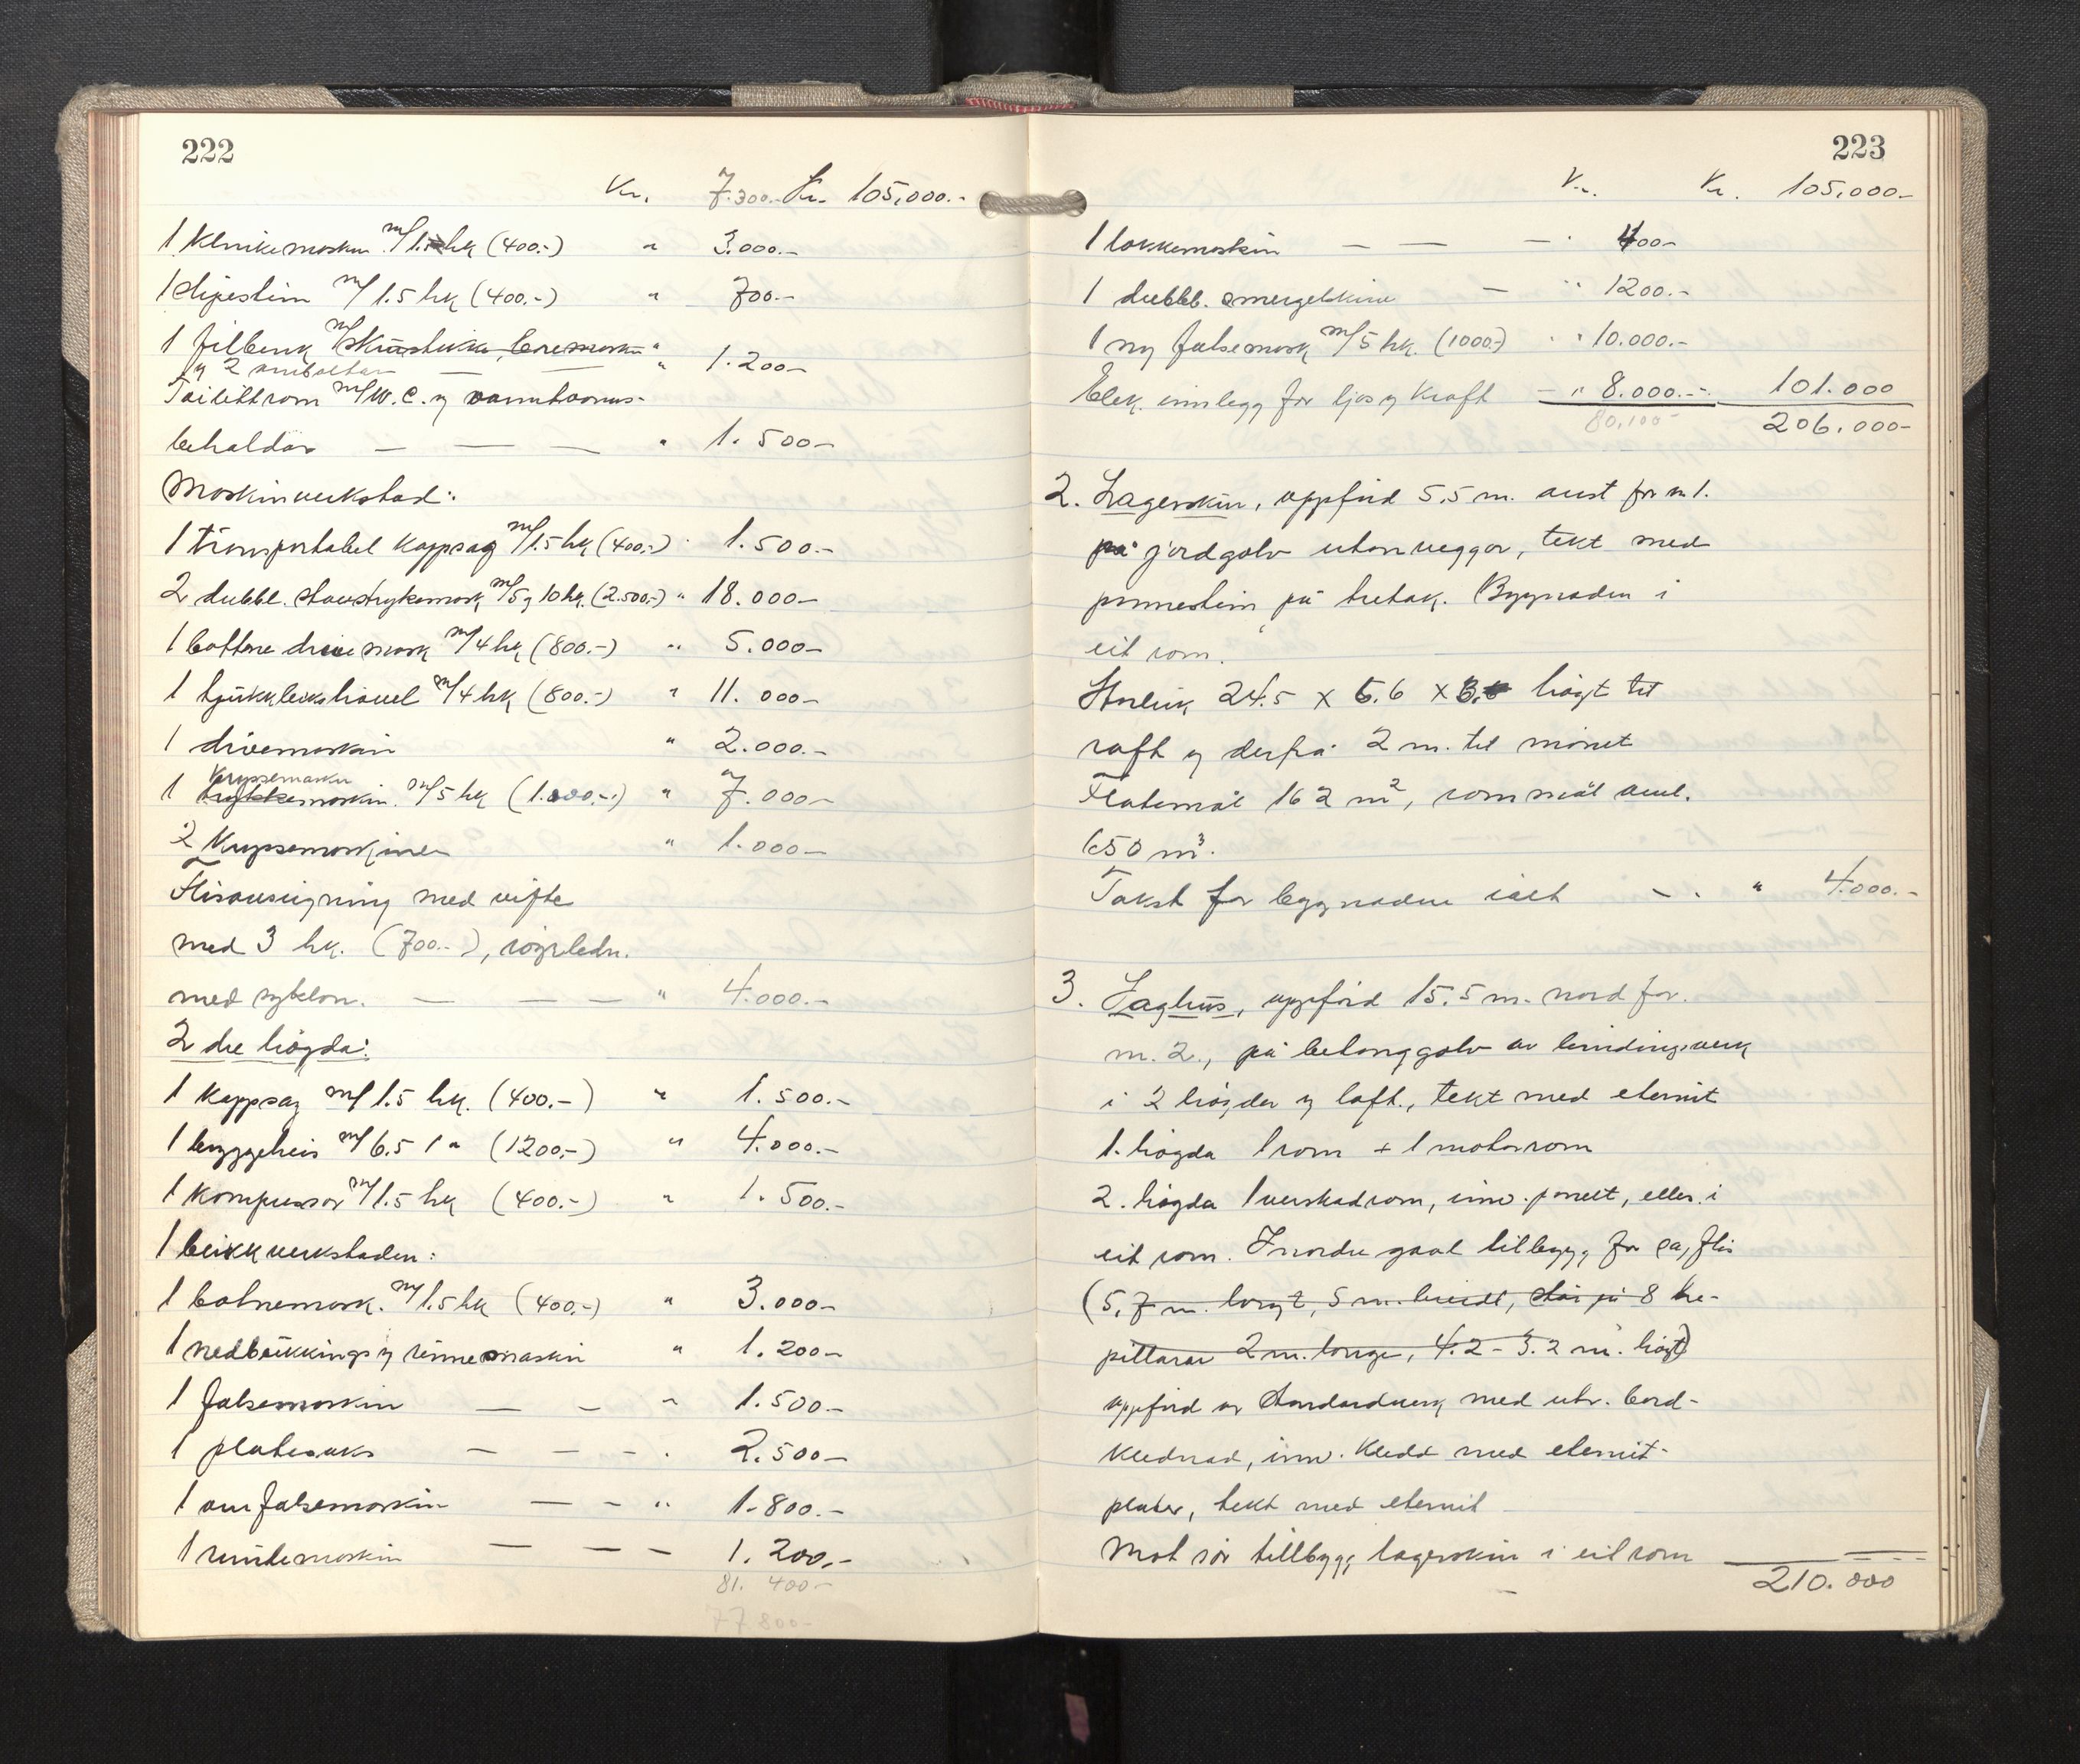 222
Kr. 7.300.- Kr. 105,000.-
1 Klinkemaskin m/1.5 hk (400.-) " 3.000.-
1 slipestein m/1.5 hk (400.-) " 700.-
1 filbenk m/skrustikke, boremaskin "
og 2 amboltar — — " 1.200-
Toilettrom m/W.C. og varmtvanns-
behaldar — — — " 1.500-
Maskinverkstad:
1 transportabel kappsag m/1.5 hk (400.-) " 1.500.-
2 dubbl. m/5 og 10 hk. (2.500.-) " 18.000-
1 m/4 hk (800.-) " 5.000-
1 m/4 hk (800.-) " 11.000-
1 drivemaskin " 2.000.-
Krypsemaskin
1 trykkemaskin m/5 hk (1.000.-) " 7.000-
2 Krypsemaskiner " 1.000-
Flisavsugning med vifte
med 3 hk. (700.-), rørledn.
med syklon. — — — " 4.000.-
2 dre högda:
1 kappsag m/1.5 hk. (400.-) " 1.500.-
1 byggeheis m/6.5 " (1200.-) " 4.000.-
1 kompressor m/1.5 hk (400.-) " 1.500.-
I blikkverkstaden:
1 m/1.5 hk (400.-) " 3.000-
1 nedbukkings og rennemaskin " 1.200-
1 falsemaskin — - " 1.500-
1 platesaks — — - . 2.500-
1 omfalsemaskin — - " 1.800.-
1 rundemaskin — — — 1.200.-
81.400-
77 800-
223
Kr. Kr. 105,000-
1 lokkemaskin — — — . 400-
1 dubbl. smergelskive — " 1200.-
1 ny falsemask m/5 hk. (1000.-) " 10.000.-
Elek. innlegg for ljos og kraft — " 8.000.-- 101.000
80,100- 206.000-
2. Lagerskur, uppførd 5,5 m. aust for nr 1.
på jordgolv utan veggar, tekt med
pannestein på tretak. Bygnaden i
eit rom.
Storleik 24.5 x 6.6 x 3. högt til
raft og derfrå 2 m. til mönet
Flatemål 162 m², rommål oml.
650 m³.
Takst for bygnaden ialt - . " 4.000.-
3. Laghus, uppförd 15.5 m. nord for
nr. 2., på betonggolv av bindingsverk
i 2 högder og loft., tekt med eternit
1. högda 1 rom + 1 motorrom
2. högda 1 verkstadrom, innv. panelt, elles i
eit rom. I nordre gavl tilbygg for sagflis
(5,7 m. langt, 5 m. breidt, står på 8 tre-
pillarar 2 m. lange, 4.2 - 3.2 m. högt)
uppförd av standardverk med utv. bord-
klednad, innv. kledd med eternit-
plater, tekt med eternit
Mot sör tillbygg lagerskur i eit rom
210.000